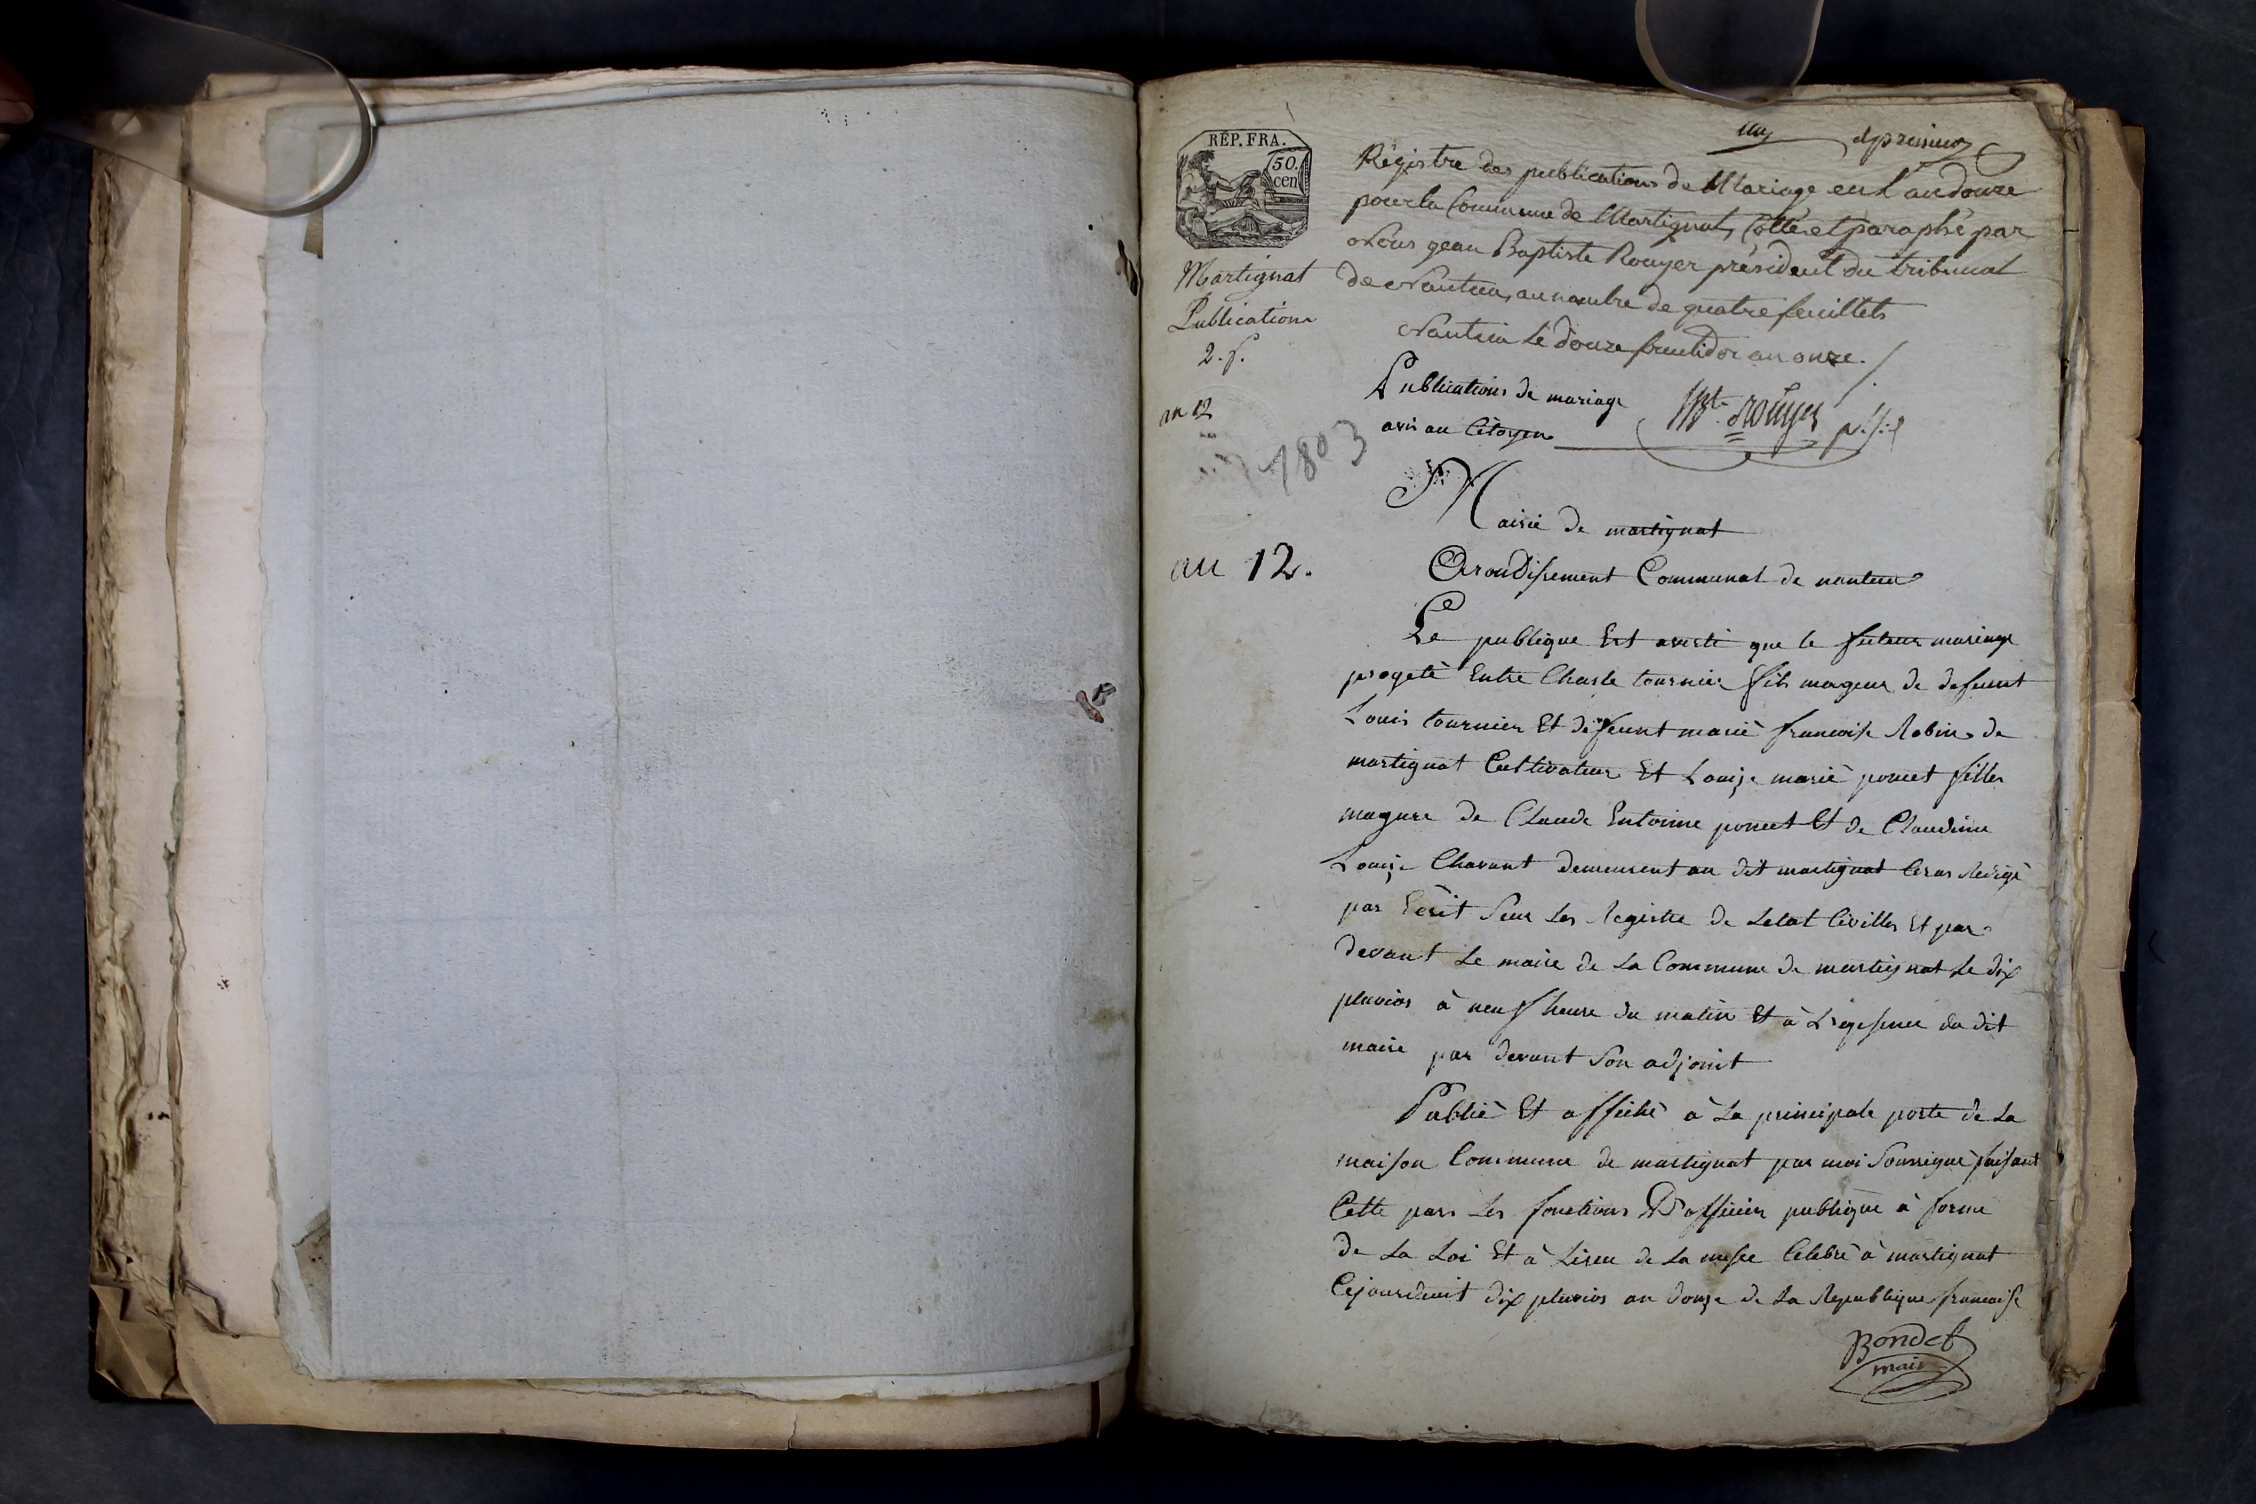 RÉP. FRA.
50.
cen
Martignat
Publication
2. f.
an 12
1803
an 12.
un et premier
Régistre des publications de Mariage en L'an douze
pour la Commune de Martignat, Cotté et paraphé par
Nous jean Baptiste Rouyer président du tribunal
de Nantua, au nombre de quatre feuillets
Nantua le douze fructidor an onze.
Publications de mariage
avis au Citoyen
Rouyer
Mairie de martignat
Arondisement Communal de nantua
Le publique Est averti que le futeur mariage
progeté Entre Charle tournier fils mageur de defeunt
Louis tournier Et defeunt marie francoise Robin de
martignat Cultivateur Et Louise marie poncet filles
magure de Claude Entoine poncet Et de Claudine
Louise Chavant demeurent au dit martignat Ceras Redigé
par Ecrit Seur Les Registre de Letat Civilles Et par
devant Le maire de La Commune de martignat Le dix
pluvios à neuf heure du matin Et à L'egesence du dit
maire par devant Son adjoint
Publié Et affiché à La principale porte de La
maison Commune de martignat par moi Soussigné faisant
Cette pars Les fonctions D'officier publique à forme
de La Loi Et à Liseu de La messe Celebré à martignat
Cejourduit dix pluvios an douze de La Republique francaise
Bondet
maire